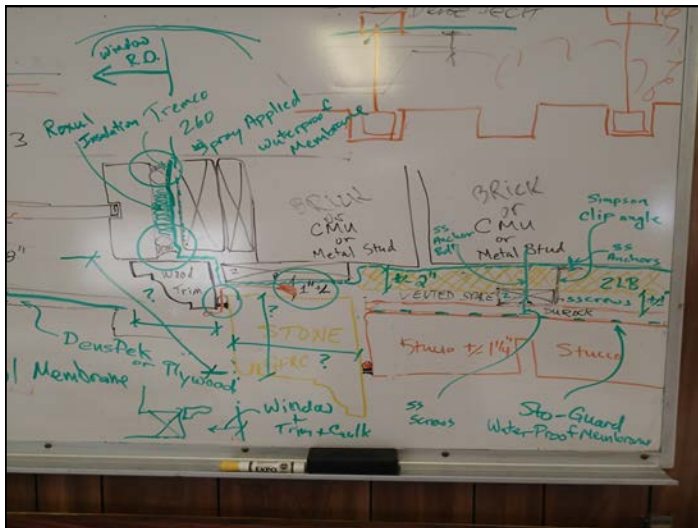 Window
R.O.
Roxul
Insulation
Tremco
260
Spray Applied
Waterproof
Membrane
3
8"
BRICK
or
CMU
or
Metal Stud
BRICK
or
CMU
or
Metal Stud
SS
Anchor
Rd
Simpson
Clip angle
SS
Anchors
Wood
Trim
?
?
2
1"±
?
+/- 2"
2LB
VENTED SPACE
2
SS screws
+/- 1"
DUROCK
STONE
?
Stucco +/- 1 1/4"
Stucco
Dens Dek
or Plywood
Membrane
Window
+
Trim + Caulk
SS
Screws
Sto-Guard
WaterProof Membrane
EXPO